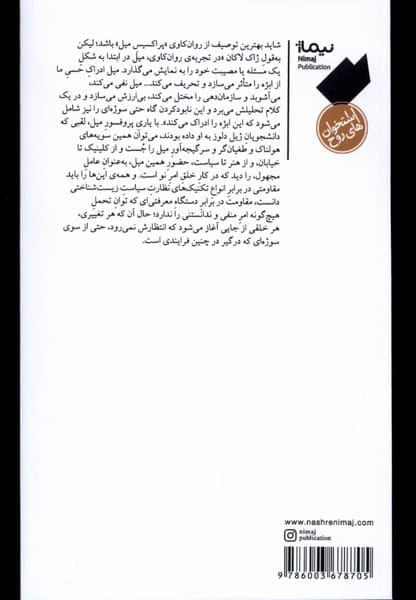 نیماژ
Nimaj
Publication
استخوان
های روح
شاید بهترین توصیف از روان‌کاوی «پراکسیس میل» باشد؛ لیکن
به‌قول ژاک لاکان «در تجربه‌ی روان‌کاوی، میل در ابتدا به شکل
یک مسئله یا مصیبت خود را به نمایش می‌گذارد. میل ادراکِ حسی ما
از ابژه را متأثر می‌سازد و تحریف می‌کند... میل نفی می‌کند،
می‌آشوبد و سازمان‌دهی را مختل می‌کند، بی‌ارزش می‌سازد و در یک
کلام تحلیلش می‌برد و این نابودکردن گاه حتی سوژه‌ای را نیز شامل
می‌شود که این ابژه را ادراک می‌کند». با یاری پروفسورِ میل، لقبی که
دانشجویان ژیل دلوز به او داده بودند، می‌توان همین سویه‌های
هولناک و طغیان‌گر و سرگیجه‌آور میل را جُست و از کلینیک تا
خیابان، و از هنر تا سیاست، حضورِ همین میل، به‌عنوان عاملِ
مجهول، را دید که در کارِ خلقِ امرِ نو است. و همه‌ی این‌ها را باید
مقاومتی در برابر انواع تکنیک‌های نظارتِ سیاستِ زیست‌شناختی
دانست، مقاومت در برابر دستگاهِ معرفتی‌ای که توانِ تحملِ
هیچ‌گونه امرِ منفی و ندانستنی را ندارد؛ حال آن که هر تغییری،
هر خلقی از جایی آغاز می‌شود که انتظارش نمی‌رود، حتی از سوی
سوژه‌ای که درگیر در چنین فرایندی است.
www.nashrenimaj.com
nimaj
publication
9 786003 678705